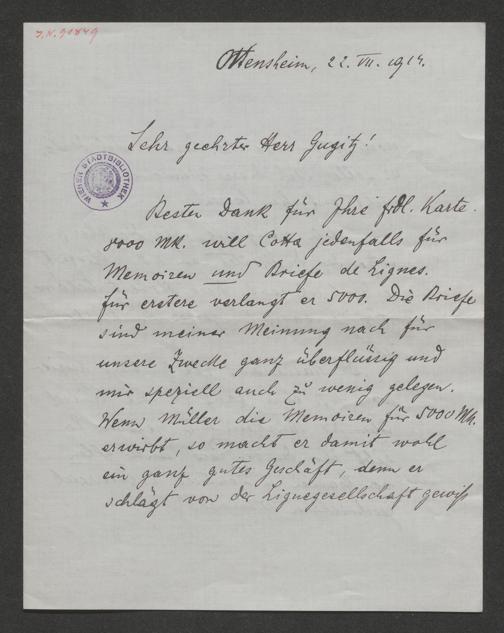 J.N. 90849
Ottensheim, 22. VII. 1914.
Sehr geehrter Herr Gugitz!
WIENER STADTBIBLIOTHEK
Besten Dank für Ihre frdl. Karte.
8000 Mk. will Cotta jedenfalls für
Memoiren und Briefe de Lignes.
für erstere verlangt er 5000. Die Briefe
sind meiner Meinung nach für
unsere Zwecke ganz überflüssig und
mir speziell auch zu wenig gelegen.
Wenn Müller die Memoiren für 5000 Mk.
erwirbt, so macht er damit wohl
ein ganz gutes Geschäft, denn er
schlägt von der Lignegesellschaft gewiß